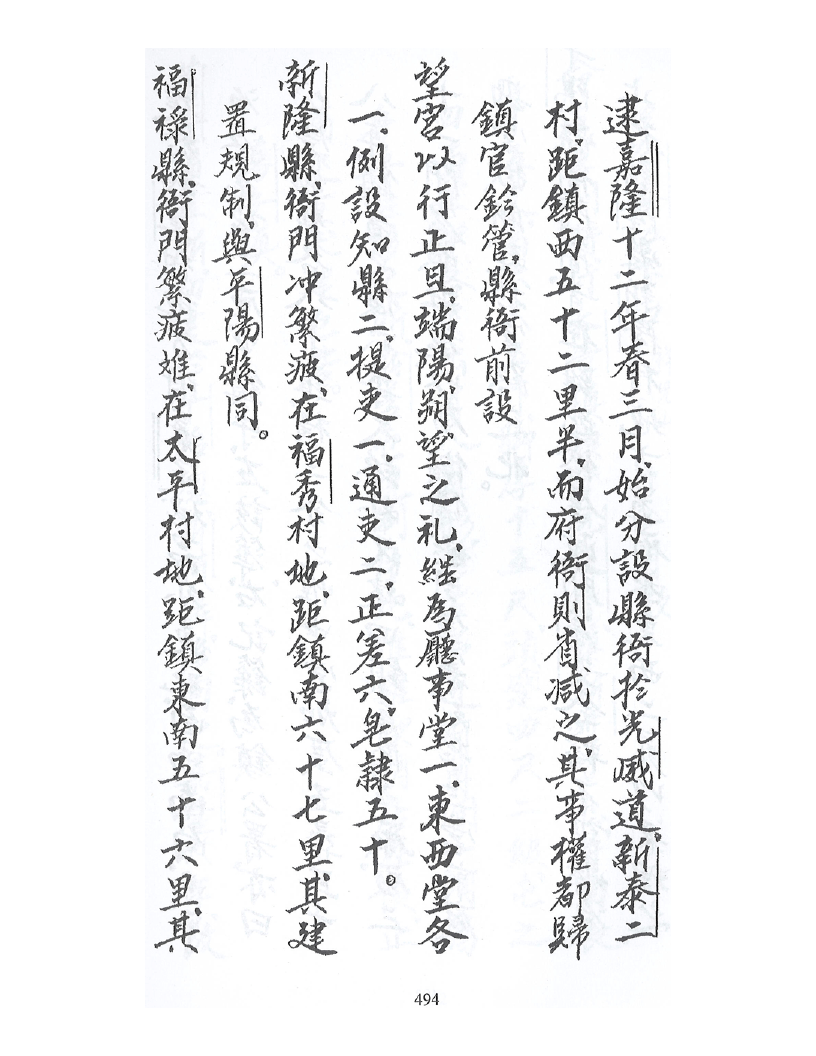 逮嘉隆十二年春三月、始分設縣衙於光威道、新泰二
村、距鎮西五十二里半、而府衙則省減之、其事權都歸
鎮官鈐管、縣衙前設
望宮以行正旦、端陽、朔、望之礼、継為廳事堂一、東西堂各
一、例設知縣二、提吏一、通吏二、正差六、皂隸五十。
新隆縣、衙門冲繁疲、在福秀村地、距鎮南六十七里、其建
置規制、與平陽縣同。
福祿縣、衙門繁疲难、在太平村地、距鎮東南五十六里、其
494